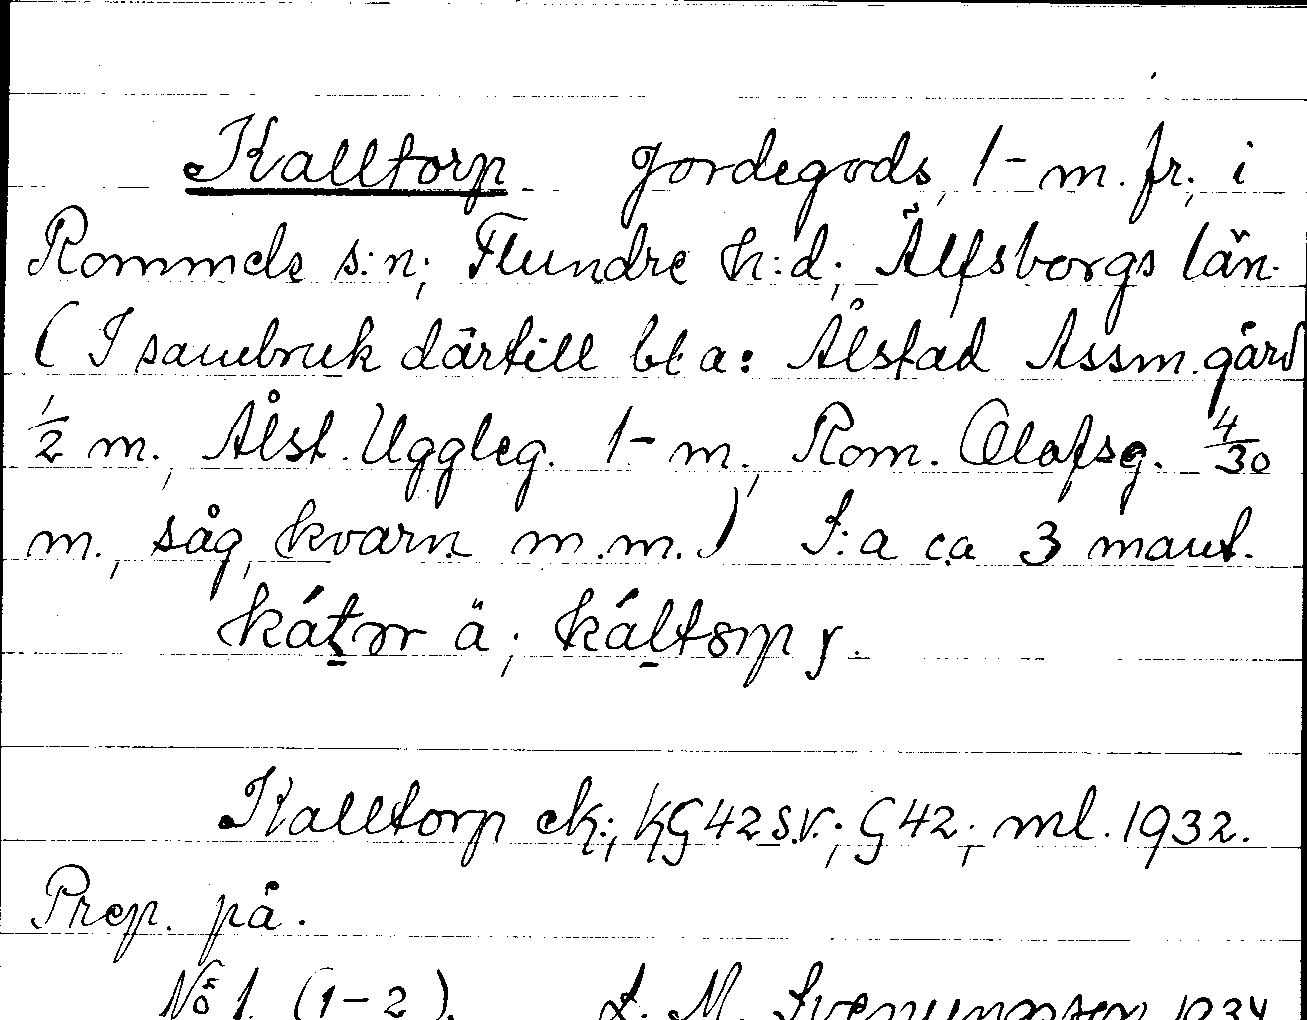 Kalltorp jordegods, 1- m. fr., i
Rommele s:n; Flundre h:d; Älfsborgs län.
(I sambruk därtill bl.a: Ålstad Assm.gård
1/2 m., Ålst. Uggleg. 1- m., Rom. Olofsg. 4/30
m., såg, kvarn m.m.) S:a ca 3 mant.
ä; y.
Kalltorp ek; KG42s.v.; G42; ml. 1932.
Prep. på.
No 1. (1-2). L. M. Svenungsson 1934